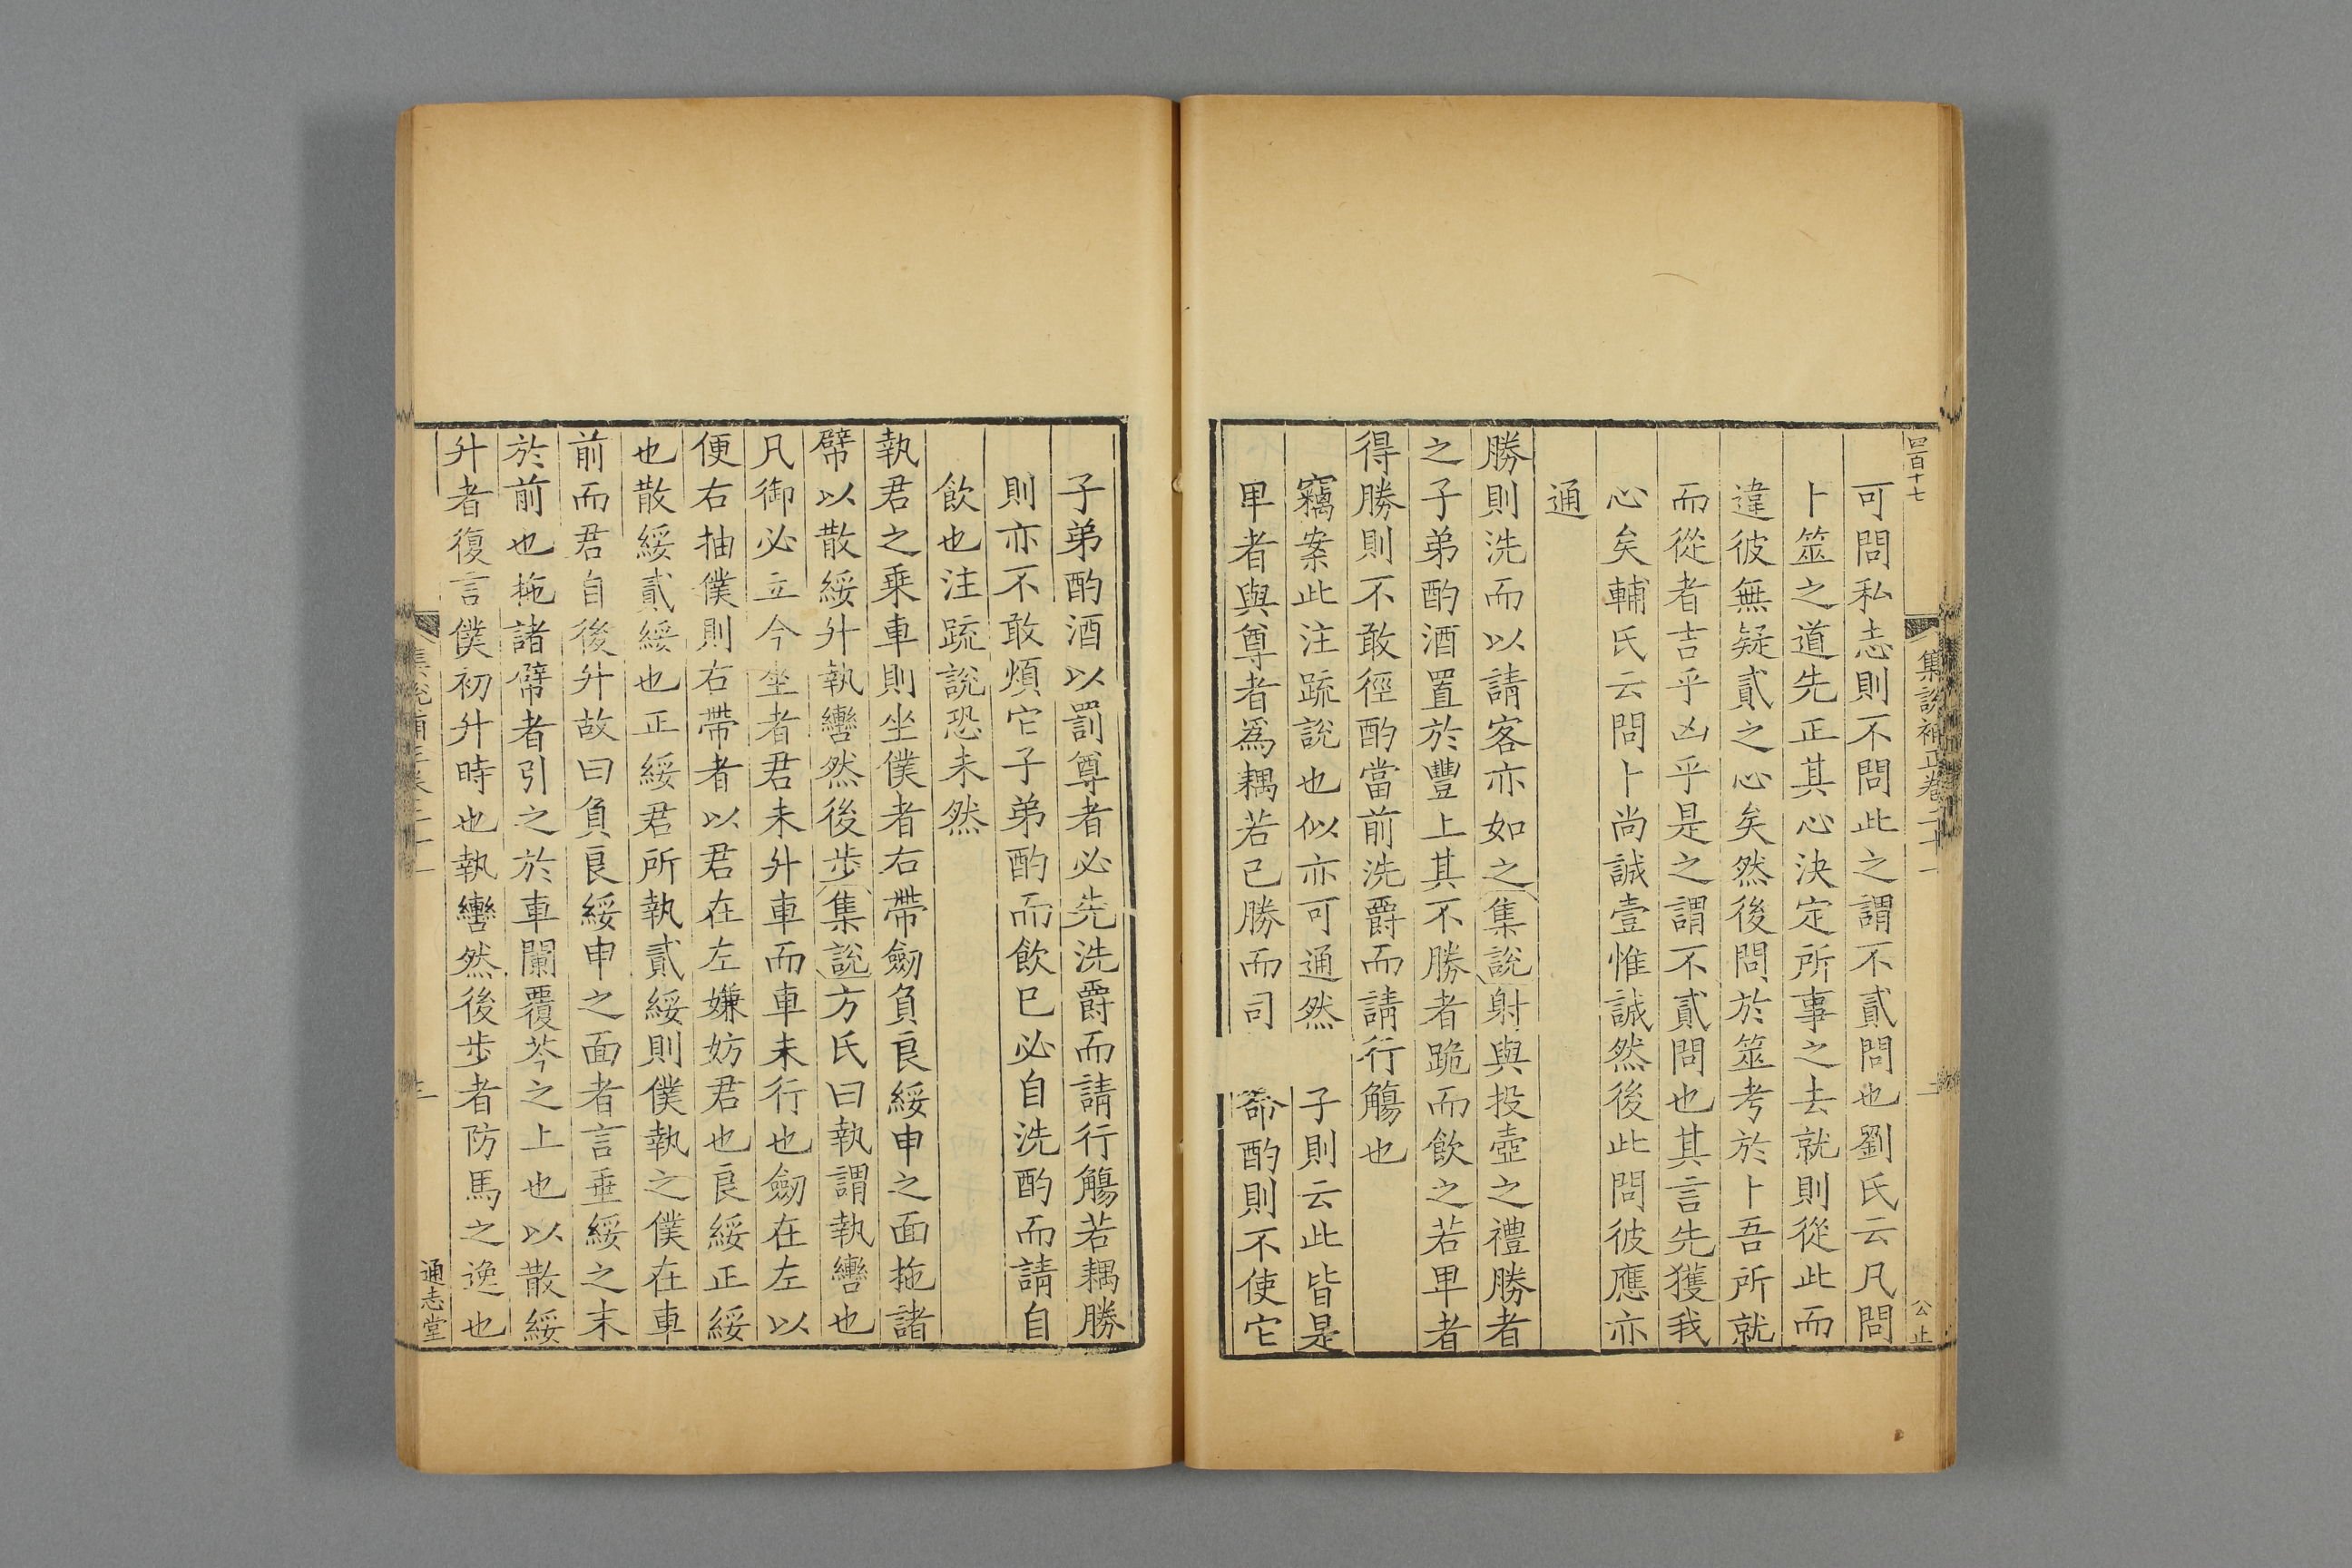 四百十七
集說補正卷二十一
二
公止
可問私志則不問此之謂不貳問也劉氏云凡問
卜筮之道先正其心決定所事之去就則從此而
違彼無疑貳之心矣然後問於筮考於卜吾所就
而從者吉乎凶乎是之謂不貳問也其言先獲我
心矣輔氏云問卜尚誠壹惟誠然後此問彼應亦
通
勝則洗而以請客亦如之集說射與投壺之禮勝者
之子弟酌酒置於豐上其不勝者跪而飲之若卑者
得勝則不敢徑酌當前洗爵而請行觴也
竊案此注疏說也似亦可通然 子則云此皆是
卑者與尊者爲耦若己勝而司 命酌則不使它
子弟酌酒以罰尊者必先洗爵而請行觴若耦勝
則亦不敢煩它子弟酌而飲已必自洗酌而請自
飲也注疏說恐未然
執君之乘車則坐僕者右帶劒負良綏申之面拖諸
幦以散綏升執轡然後步集說方氏曰執謂執轡也
凡御必立今坐者君未升車而車未行也劒在左以
便右抽僕則右帶者以君在左嫌妨君也良綏正綏
也散綏貳綏也正綏君所執貳綏則僕執之僕在車
前而君自後升故曰負良綏申之面者言垂綏之末
於前也拖諸幦者引之於車闌覆苓之上也以散綏
升者復言僕初升時也執轡然後步者防馬之逸也
通志堂